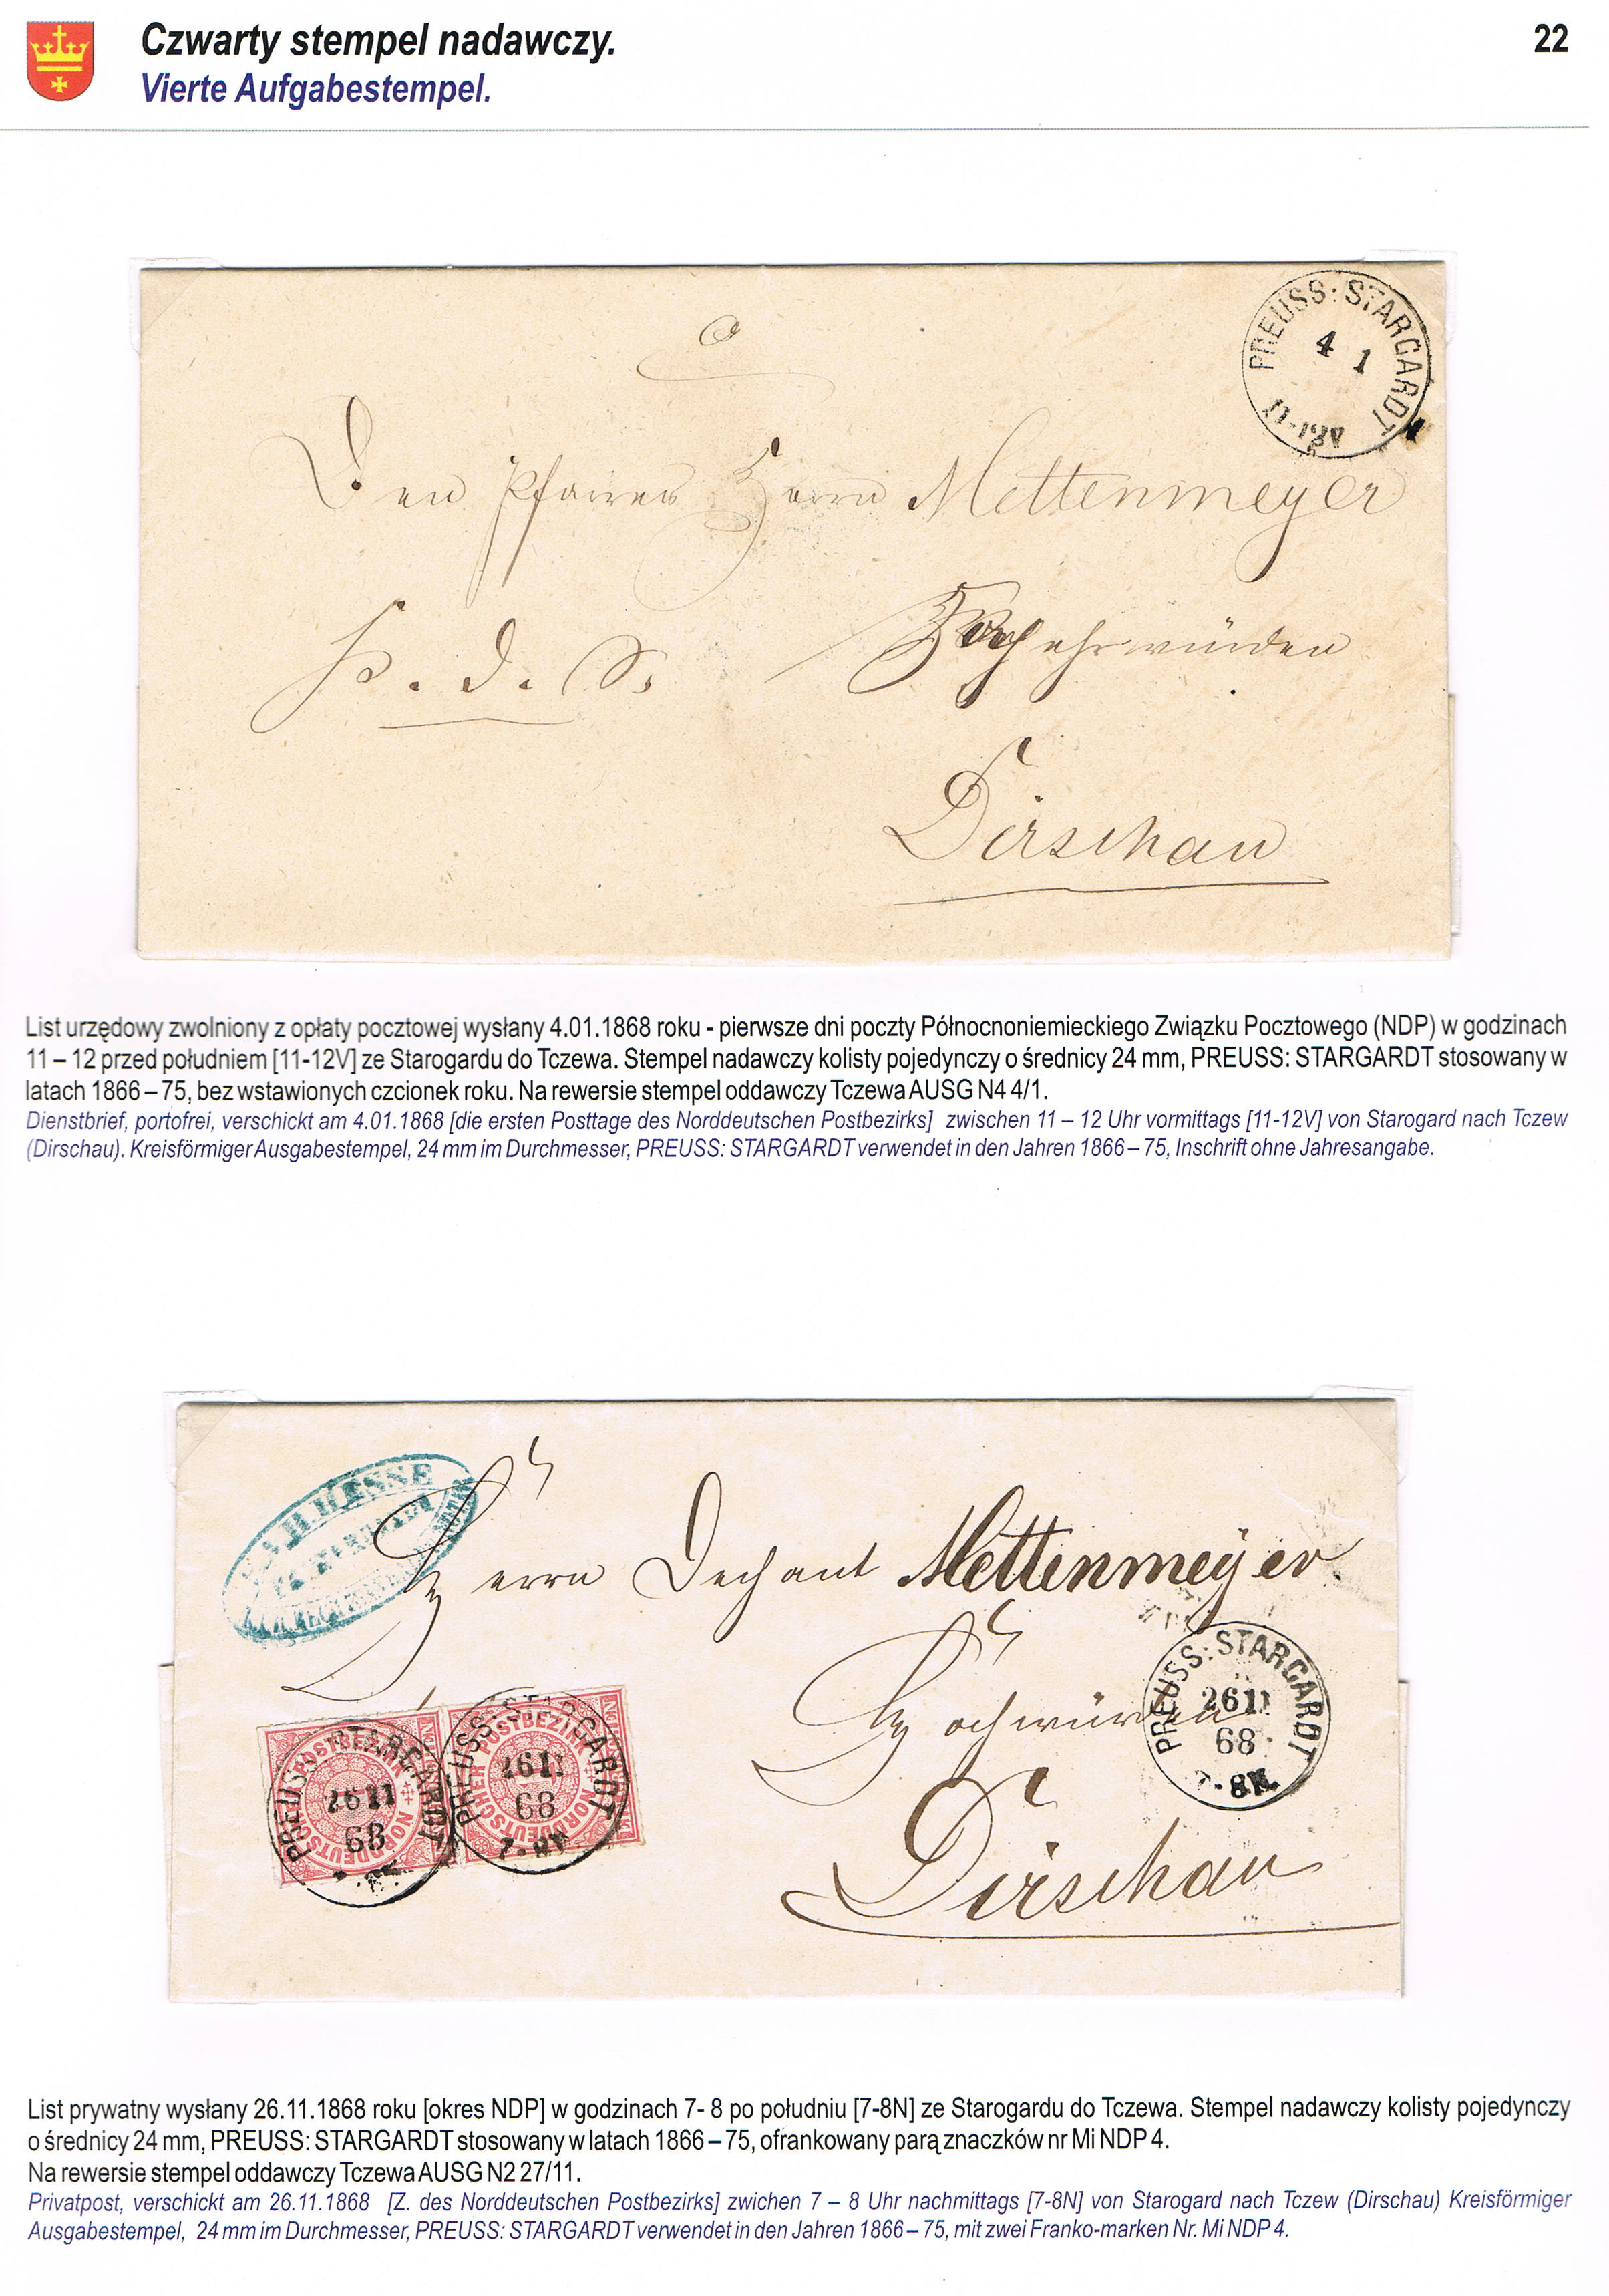 Czwarty stempel nadawczy.
22
Vierte Aufgabestempel.
PREUSS: STARGARDT
4 1
Den Pfarrer Herrn Mettenmeyer
H. d. S.
Hochehrwürden
Dirschau
List urzędowy zwolniony z opłaty pocztowej wysłany 4.01.1868 roku - pierwsze dni poczty Północnoniemieckiego Związku Pocztowego (NDP) w godzinach
11 – 12 przed południem [11-12V] ze Starogardu do Tczewa. Stempel nadawczy kolisty pojedynczy o średnicy 24 mm, PREUSS: STARGARDT stosowany w
latach 1866 – 75, bez wstawionych czcionek roku. Na rewersie stempel oddawczy Tczewa AUSG N4 4/1.
Dienstbrief, portofrei, verschickt am 4.01.1868 [die ersten Posttage des Norddeutschen Postbezirks] zwischen 11 – 12 Uhr vormittags [11-12V] von Starogard nach Tczew
(Dirschau). Kreisförmiger Ausgabestempel, 24 mm im Durchmesser, PREUSS: STARGARDT verwendet in den Jahren 1866 – 75, Inschrift ohne Jahresangabe.
HESSE
Herrn Dechant Mettenmeyer
Hochwürden
PREUSS: STARGARDT
26 11
68
7-8N.
NORDDEUTSCHER POSTBEZIRK
PREUSS: STARGARDT
26 11
68
NORDDEUTSCHER POSTBEZIRK
PREUSS: STARGARDT
26 11
68
7-8N
Dirschau
List prywatny wysłany 26.11.1868 roku [okres NDP] w godzinach 7- 8 po południu [7-8N] ze Starogardu do Tczewa. Stempel nadawczy kolisty pojedynczy
o średnicy 24 mm, PREUSS: STARGARDT stosowany w latach 1866 – 75, ofrankowany parą znaczków nr Mi NDP 4.
Na rewersie stempel oddawczy Tczewa AUSG N2 27/11.
Privatpost, verschickt am 26.11.1868 [Z. des Norddeutschen Postbezirks] zwichen 7 – 8 Uhr nachmittags [7-8N] von Starogard nach Tczew (Dirschau) Kreisförmiger
Ausgabestempel, 24 mm im Durchmesser, PREUSS: STARGARDT verwendet in den Jahren 1866 – 75, mit zwei Franko-marken Nr. Mi NDP 4.